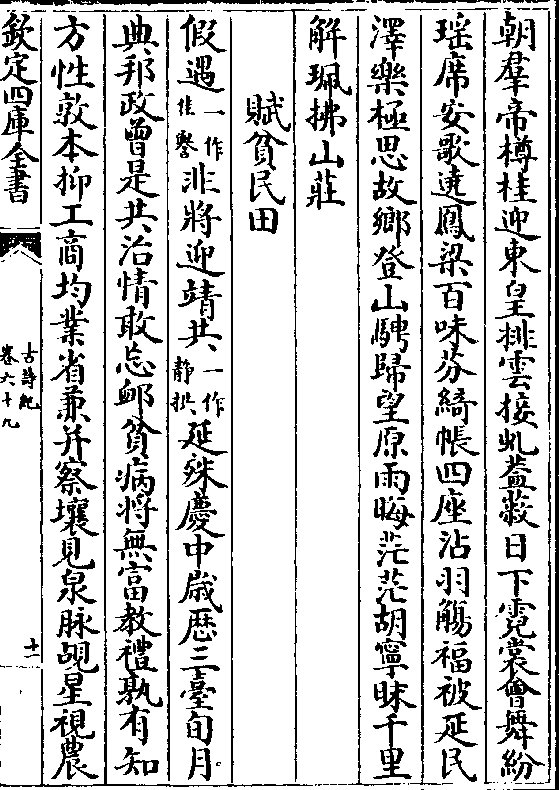 朝羣帝樽桂迎東皇排雲接虬蓋蔽日下霓裳會舞紛
瑶席安歌遶鳳梁百味芬綺帳四座沾羽觴福被延民
澤樂極思故鄉登山騁歸望原雨晦茫茫胡寧昧千里
解珮拂山莊
賦貧民田
假遇一作佳譽非將迎靖共一作靜拱延殊慶中歲歴三臺旬月
典邦政曾是共治情敢忘邮貧病將無富教禮孰有知
方性敦本抑工商均業省兼并察壤見泉脉覘星視農
欽定四庫全書
古詩紀
卷六十九
十一